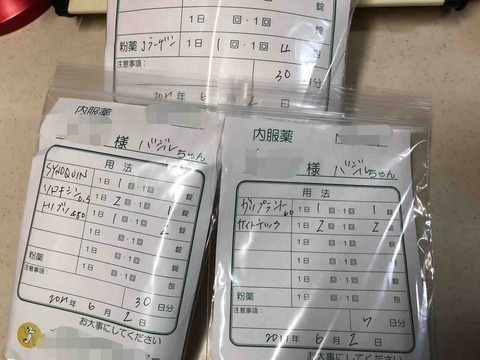 1日 回・1回 錠
粉薬 Jラーゲン 1日 1 回・1回 4 包
注意事項:
30 日分
2021年 6 月 2 日
内服薬
様 バジルちゃん
用法
SYNOQUIN 1日 1 回・1回 1 錠
ソロキシン0.5 1日 2 回・1回 錠
トリブリ450 1日 1 回・1回 2 錠
1日 回・1回 錠
1日 回・1回 錠
粉薬 1日 回・1回 包
注意事項:
30 日分
2021年 6 月 2 日
お大事にしてください
内服薬
様 バジルちゃん
用法
ガリプラント60 1日 1 回・1回 1 錠
サイトテック 1日 2 回・1回 2 錠
1日 回・1回 錠
1日 回・1回 錠
1日 回・1回 錠
粉薬 1日 回・1回 包
注意事項:
7 日分
2021年 6 月 2 日
お大事にしてください